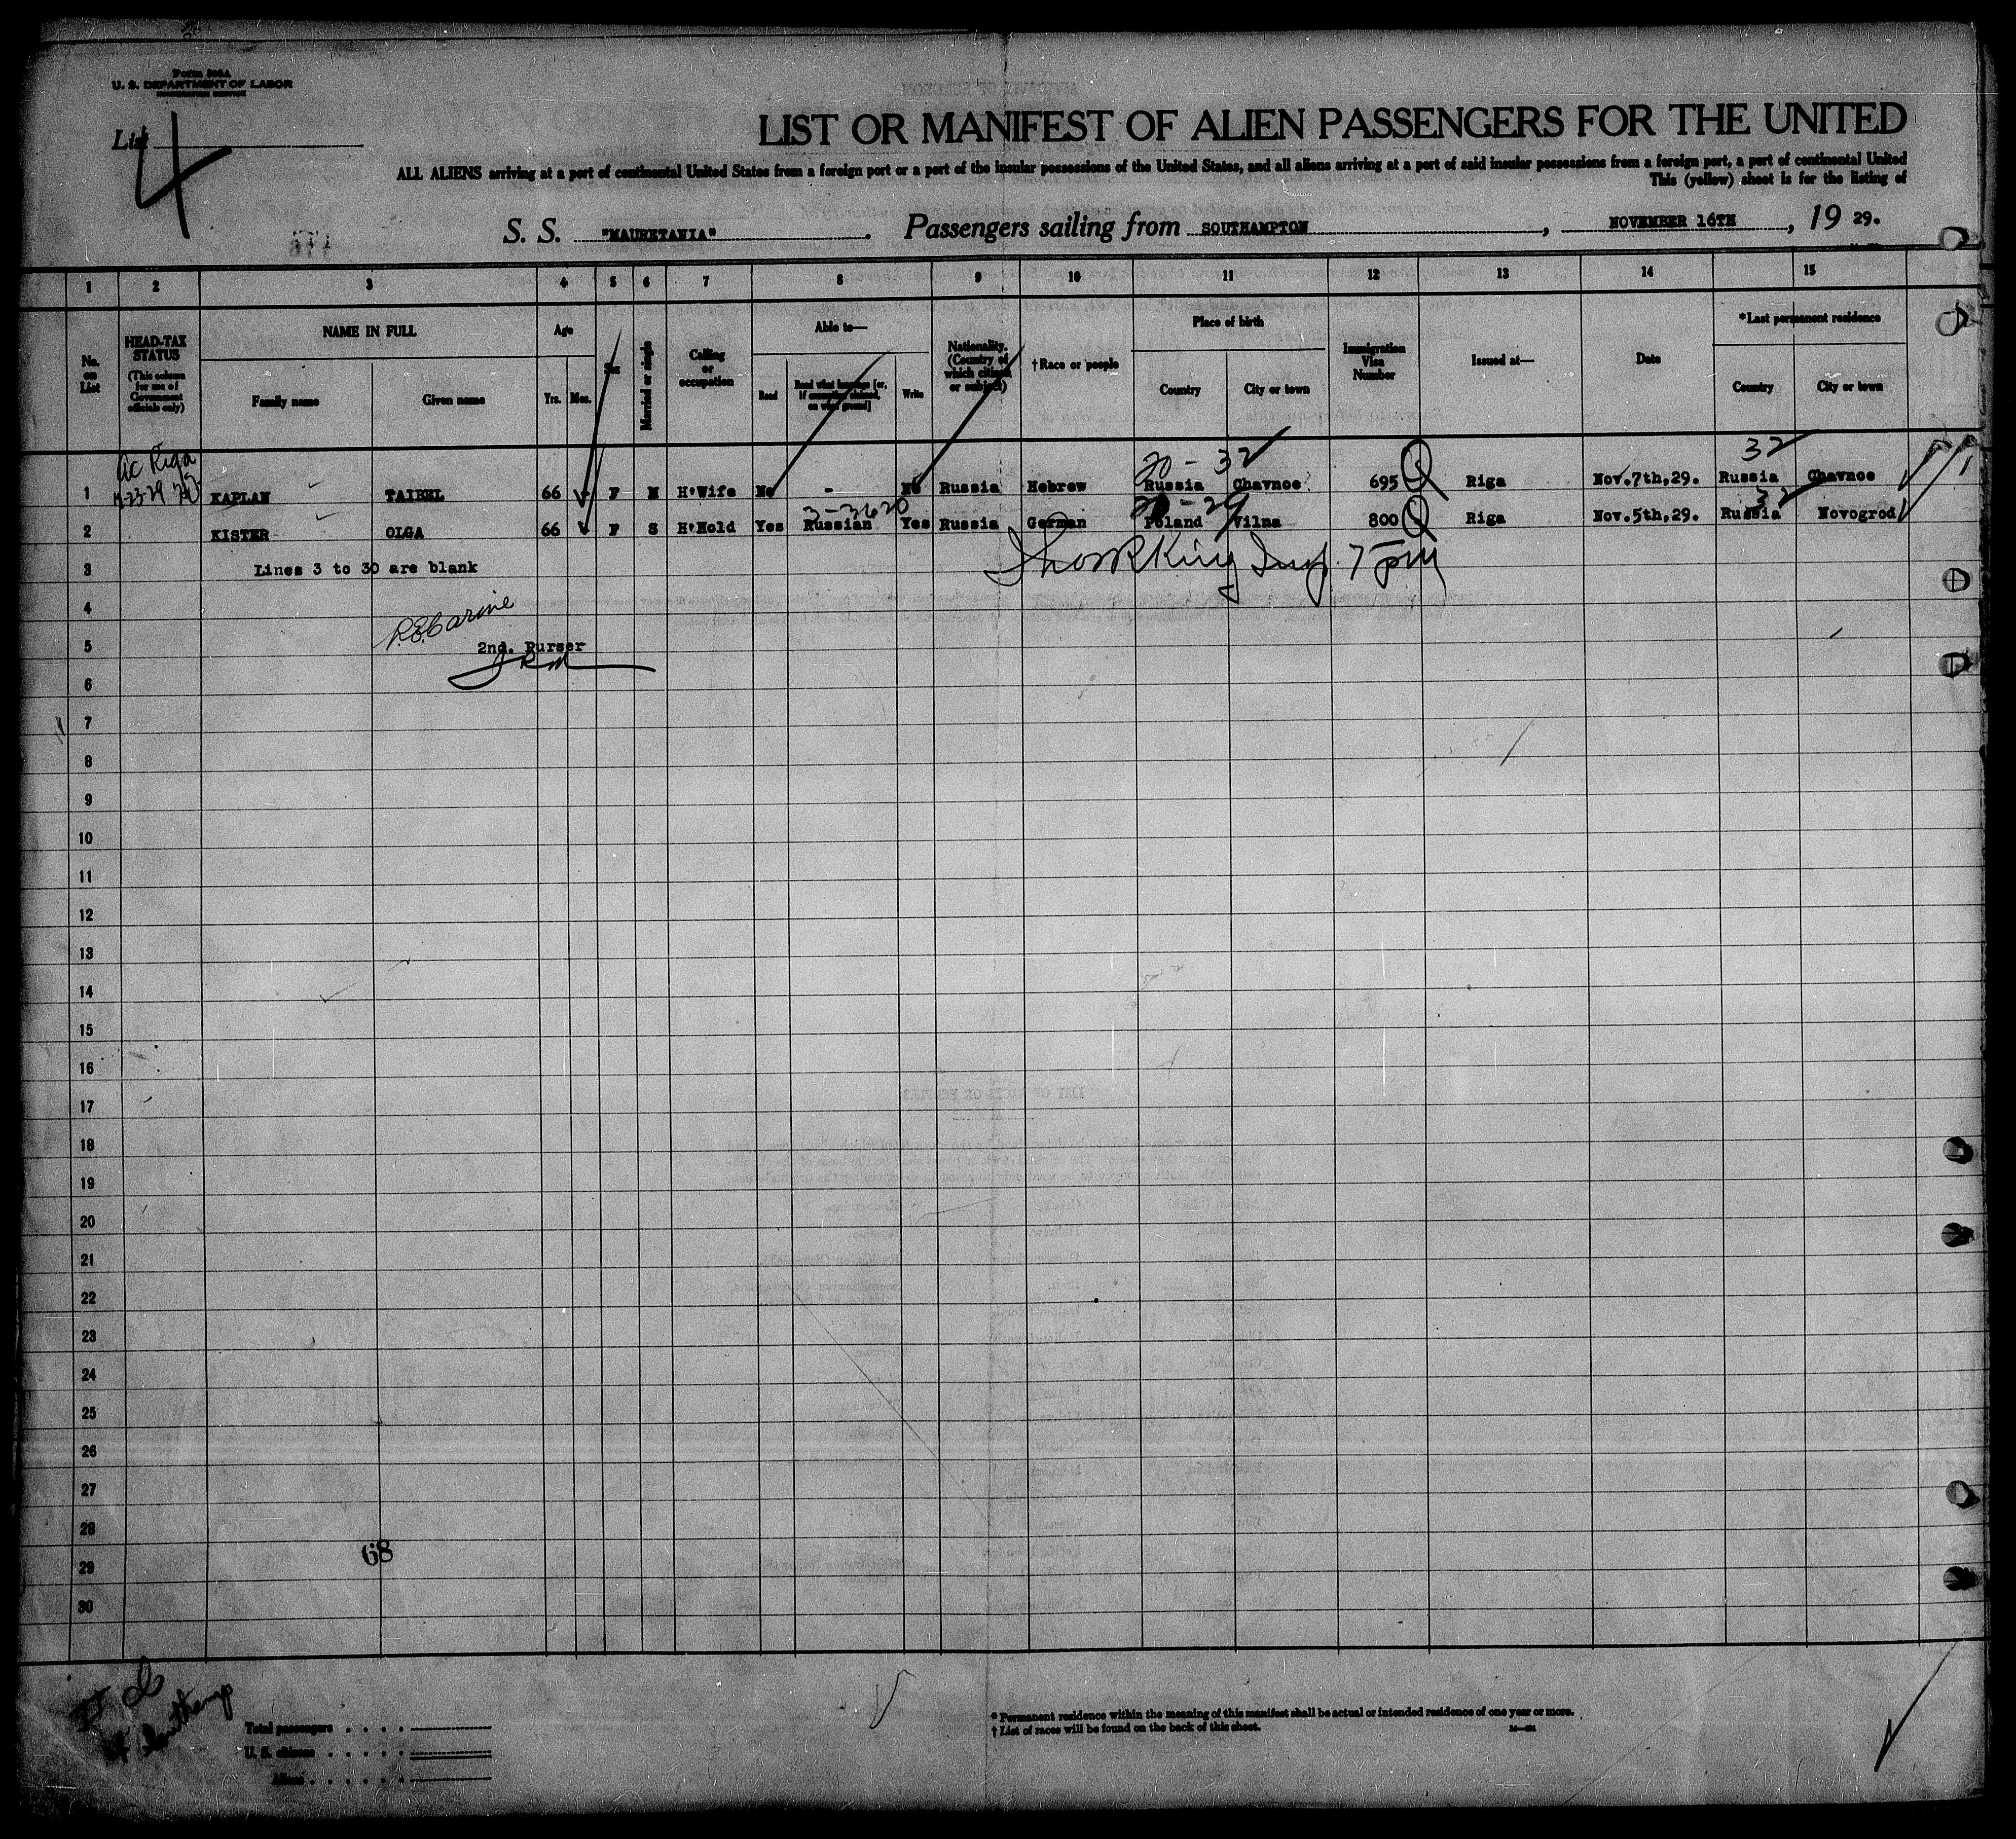 Form 500A
U. S. DEPARTMENT OF LABOR
IMMIGRATION SERVICE
List 4
LIST OR MANIFEST OF ALIEN PASSENGERS FOR THE UNITED
ALL ALIENS arriving at a port of continental United States from a foreign port or a port of the insular possessions of the United States, and all aliens arriving at a port of said insular possessions from a foreign port, a port of continental United
This (yellow) sheet is for the listing of
S. S. "MAURETANIA". Passengers sailing from SOUTHAMPTON, NOVEMBER 16TH, 19 29.
1 2 3 4 5 6 7 8 9 10 11 12 13 14 15
No. on List
HEAD-TAX STATUS
(This column for use of Government officials only)
NAME IN FULL
Family name
Given name
Age
Yrs.
Mos.
Sex
Married or single
Calling or occupation
Able to—
Read
Read what language [or, if exemption claimed, on what ground]
Write
Nationality. (Country of which citizen or subject)
†Race or people
Place of birth
Country
City or town
Immigration Visa Number
Issued at—
Date
*Last permanent residence
Country
City or town
ac Riga
20-32
32
1 KAPLAN TAIBEL 66 F M H'Wife No - No Russia Hebrew Russia Chavnoe 695 Riga Nov.7th,29. Russia Chavnoe
3-3620
20-29
32
2 KISTER OLGA 66 F S H'Hold Yes Russian Yes Russia German Poland Vilna 800 Riga Nov.5th,29. Russia Novogrod
3 Lines 3 to 30 are blank
King Insp. 7 pm
4
5 2nd. Purser
6
7
8
9
10
11
12
13
14
15
16
17
18
19
20
21
22
23
24
25
26
27
28
68
29
30
Total passengers
U. S. citizens
Aliens
* Permanent residence within the meaning of this manifest shall be actual or intended residence of one year or more.
† List of races will be found on the back of this sheet.